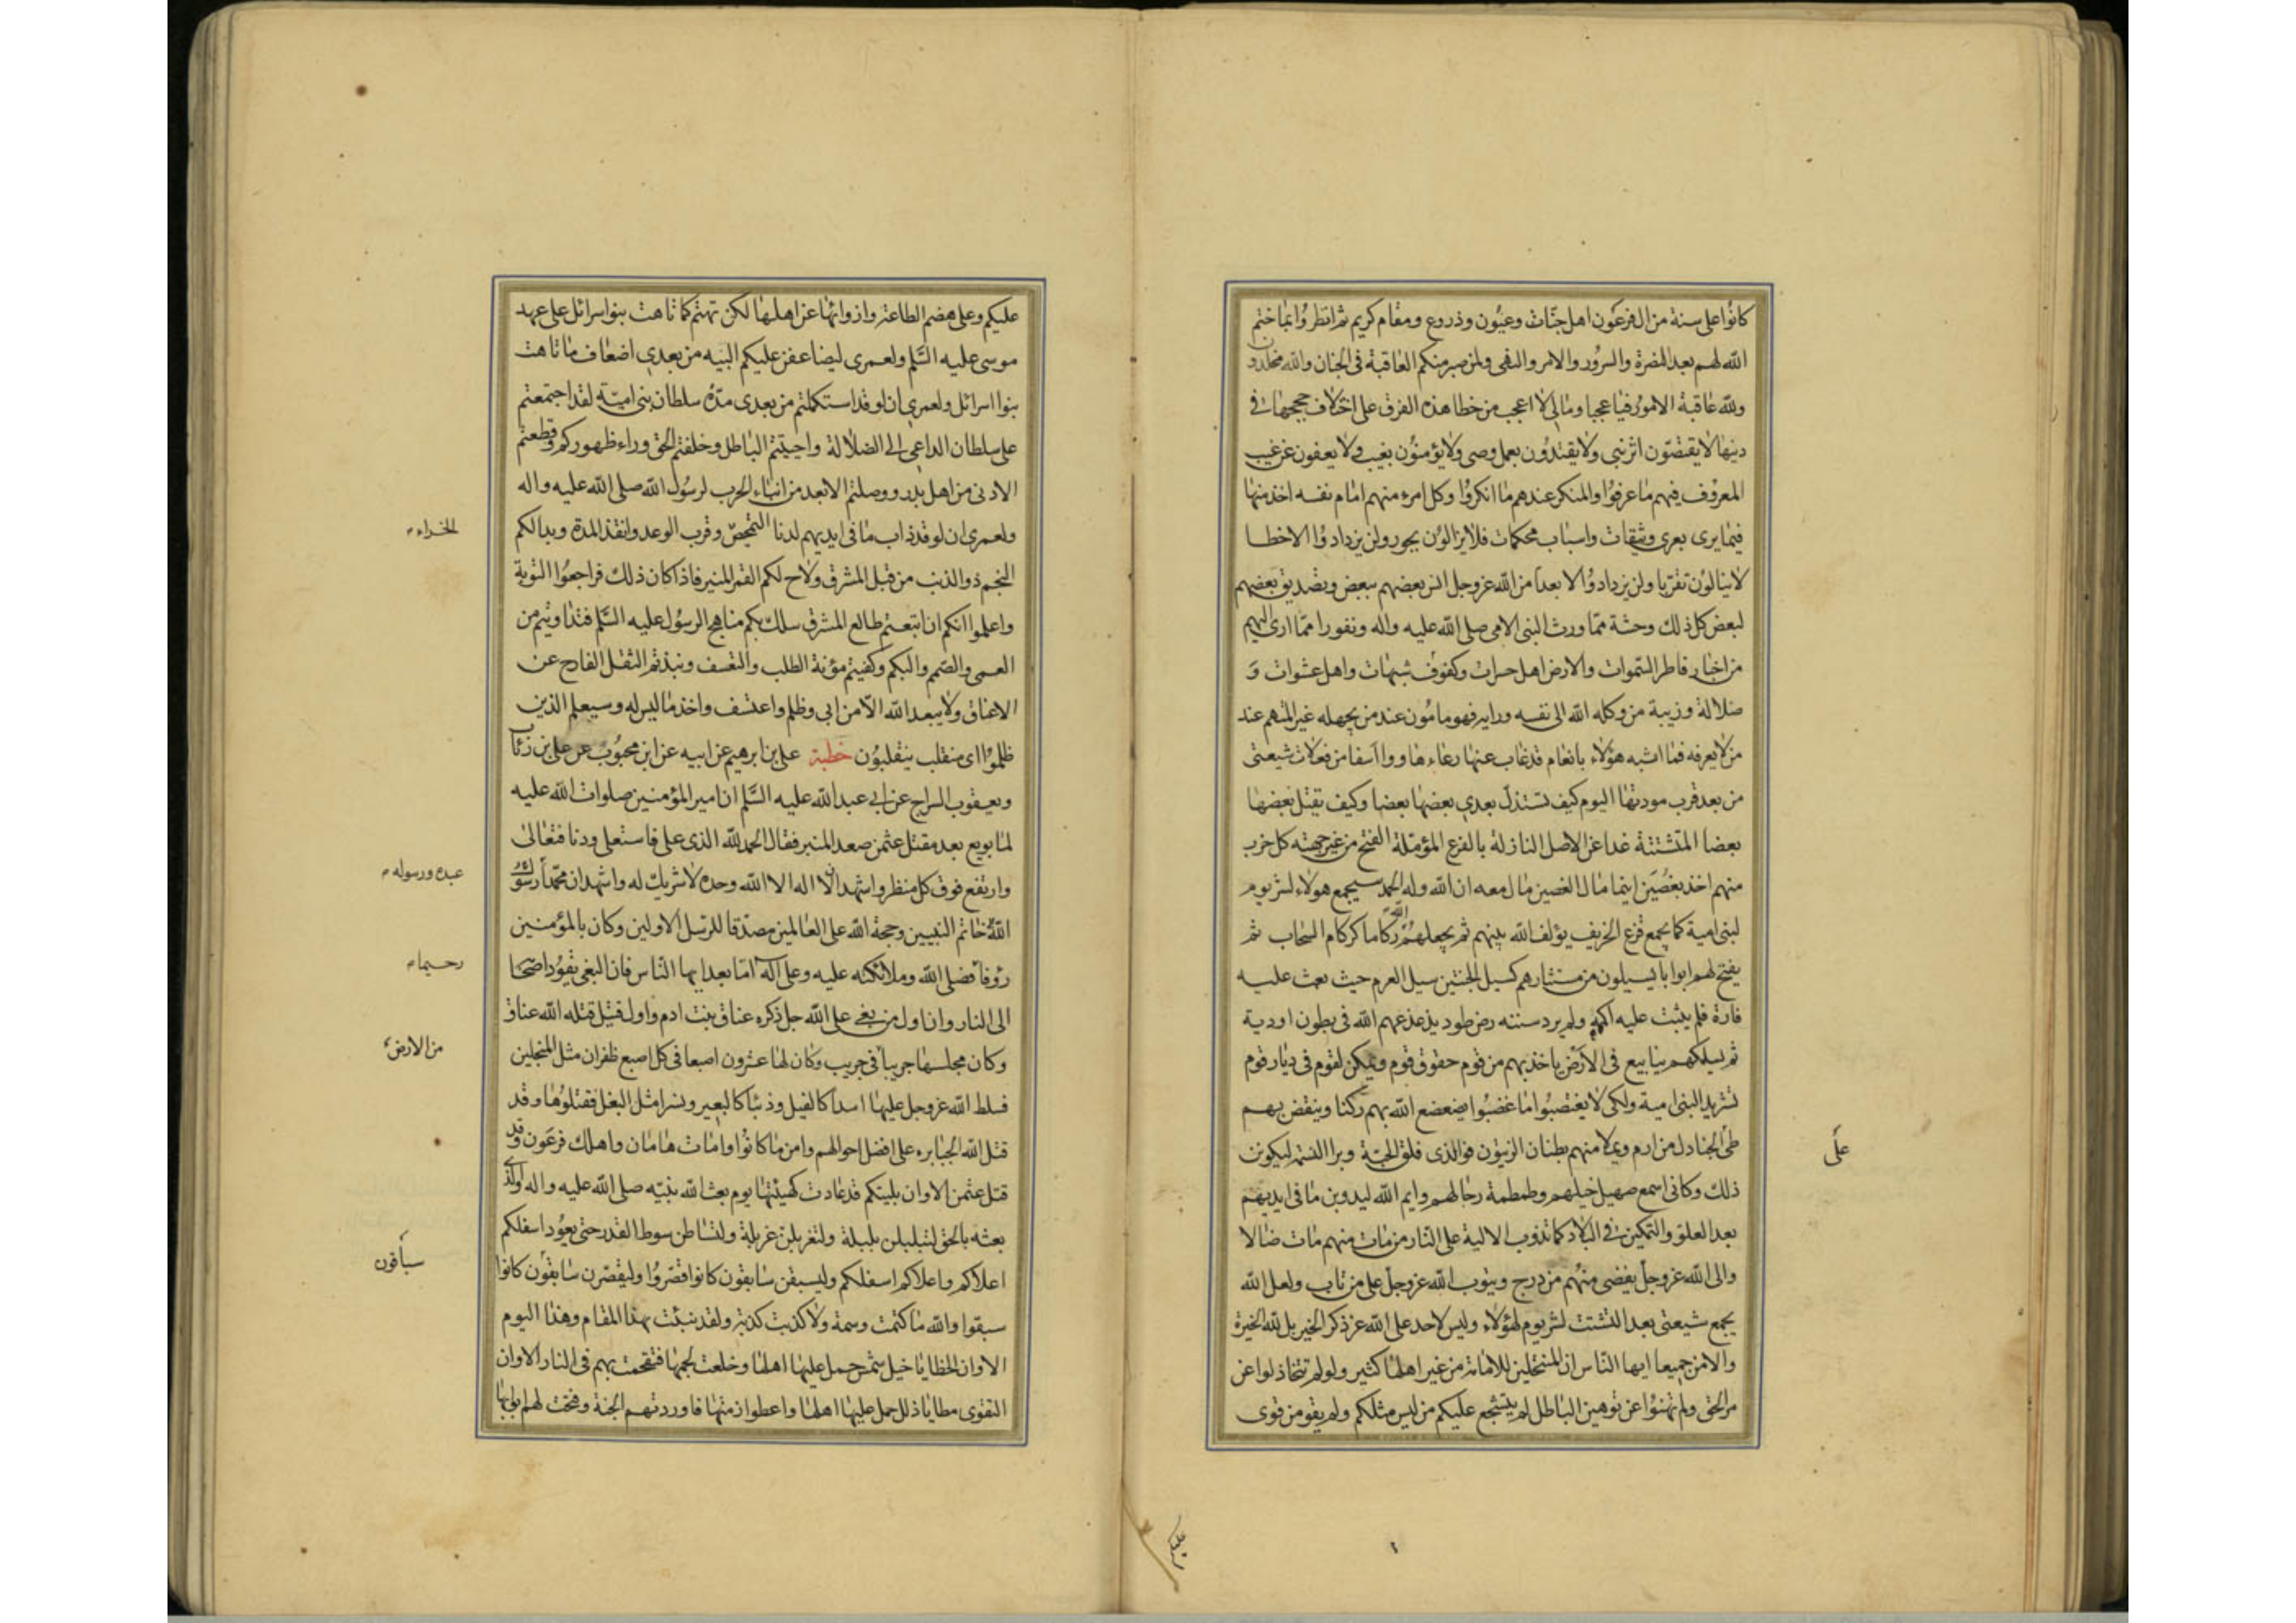 كانوا على سنة من ال فرعون اهل جنات وعيون وزروع ومقام كريم ثم انظروا بما ختم
الله لهم بعد النضرة والسرور والامر والنهى ولمن صبر منكم العاقبة فى الجنان والله مخلدون
ولله عاقبة الامور فيا عجبا ومالى لا اعجب من خطا هذه الفرق على اختلاف حججها فى
دينها لا يقتصون اثر نبى ولا يقتدون بعمل وصى ولا يؤمنون بغيب ولا يعفون عن عيب
المعروف فيهم ما عرفوا والمنكر عندهم ما انكروا وكل امرء منهم امام نفسه اخذ منها
فيما يرى بعرى وثيقات واسباب محكمات فلا يزالون بجور ولن يزدادوا الا خطا
لا ينالون تقربا ولن يزدادوا الا بعدا من الله عز وجل انس بعضهم ببعض وتصديق بعضهم
لبعض كل ذلك وحشة مما ورث النبى الامى صلى الله عليه واله ونفورا مما ادى اليهم
من اخبار فاطر السموات والارض اهل حسرات وكفوف شبهات واهل عشوات و
ضلالة وريبة من وكله الله الى نفسه ورايه فهو مامون عند من يجهله غير المتهم عند
من لا يعرفه فما اشبه هؤلاء بانعام قد غاب عنها رعاءها ووا اسفا من فعلات شيعتى
من بعد قرب مودتها اليوم كيف تستذل بعدى بعضها بعضا وكيف تقتل بعضها
بعضا المتشتتة غدا عن الاصل النازلة بالفرع المؤملة الفتح من غير جهته كل حزب
منهم اخذ بغصن اينما مال الغصن مال معه ان الله وله الحمد سيجمع هولاء لشر يوم
لبنى امية كما يجمع قزع الخريف يؤلف الله بينهم ثم يجعلهم ركاما كركام السحاب ثم
يفتح لهم ابوابا يسيلون من مستثارهم كسيل الجنتين سيل العرم حيث بعث عليه
فارة فلم يثبت عليه اكمة ولم يرد سننه رض طود يذعذعهم الله فى بطون اودية
ثم يسلكهم ينابيع فى الارض ياخذ بهم من قوم حقوق قوم ويمكن لقوم فى ديار قوم
تشريدا لبنى امية ولكى لا يغتصبوا ما غصبوا يضعضع الله بهم ركنا وينقض بهم
طى الجنادل من ارم ويملا منهم بطنان الزيتون فوالذى فلق الحبة وبرا النسمة ليكونن
على
ذلك وكانى اسمع صهيل خيلهم وطمطمة رجالهم وايم الله ليذوبن ما فى ايديهم
بعد العلو والتمكين فى البلاد كما تذوب الالية على النار من مات منهم مات ضالا
والى الله عز وجل يفضى منهم من درج ويتوب الله عز وجل على من تاب ولعل الله
يجمع شيعتى بعد التشتت لشر يوم لهؤلاء وليس لاحد على الله عز ذكره الخيرة بل لله الخيرة
والامر جميعا ايها الناس ان المنتحلين للامامة من غير اهلها كثير ولو لم تتخاذلوا عن
مر الحق ولم تهنوا عن توهين الباطل لم يتشجع عليكم من ليس مثلكم ولم يقو من قوى
عليكم
عليكم وعلى هضم الطاعة وازوائها عن اهلها لكن تهتم كما تاهت بنو اسرائل على عهد
موسى عليه السلم ولعمرى ليضاعفن عليكم التيه من بعدى اضعاف ما تاهت
بنوا اسرائل ولعمرى ان لو قد استكملتم من بعدى مدة سلطان بنى امية لقد اجتمعتم
على سلطان الداعى الى الضلالة واحييتم الباطل وخلفتم الحق وراء ظهوركم وقطعتم
الادنى من اهل بدر ووصلتم الابعد من ابناء الحرب لرسول الله صلى الله عليه واله
ولعمرى ان لو قد ذاب ما فى ايديهم لدنا التمحيص وقرب الوعد وانقذ المدة وبدا لكم
للجزاء
النجم ذو الذنب من قبل المشرق ولاح لكم القمر المنير فاذا كان ذلك فراجعوا التوبة
واعلموا انكم ان اتبعتم طالع المشرق سلك بكم مناهج الرسول عليه السلم فتداويتم من
العمى والصمم والبكم وكفيتم مؤنة الطلب والتعسف ونبذتم الثقل الفادح عن
الاعناق ولا يبعد الله الا من ابى وظلم واعتسف واخذ ما ليس له وسيعلم الذين
ظلموا اى منقلب ينقلبون خطبة على بن ابرهيم عن ابيه عن ابن محبوب عن على بن رئاب
ويعقوب السراج عن ابى عبد الله عليه السلم ان امير المؤمنين صلوات الله عليه
لما بويع بعد مقتل عثمن صعد المنبر فقال الحمد لله الذى على فاستعلى ودنا فتعالى
وارتفع فوق كل منظر واشهد ان لا اله الا الله وحده لا شريك له واشهد ان محمدا رسول
عبده ورسوله
الله خاتم النبيين وحجة الله على العالمين مصدقا للرسل الاولين وكان بالمؤمنين
رؤفا فصلى الله وملائكته عليه وعلى اله اما بعد ايها الناس فان البغى يقود اصحا
رحيما
الى النار وان اول من بغى على الله جل ذكره عناق بنت ادم واول قتيل قتله الله عناق
وكان مجلسها جريبا فى جريب وكان لها عشرون اصبعا فى كل اصبع ظفران مثل المنجلين
من الارض
فسلط الله عز وجل عليها اسدا كالفيل وذئبا كالبعير ونسرا مثل البغل فقتلوها وقد
قتل الله الجبابرة على افضل احوالهم وامن ما كانوا وامات هامان واهلك فرعون وقد
قتل عثمن الا وان بليتكم قد عادت كهيئتها يوم بعث الله نبيه صلى الله عليه واله والذى
بعثه بالحق لتبلبلن بلبلة ولتغربلن غربلة ولتساطن سوط القدر حتى يعود اسفلكم
اعلاكم واعلاكم اسفلكم وليسبقن سابقون كانوا قصروا وليقصرن سابقون كانوا
سباقون
سبقوا والله ما كتمت وسمة ولا كذبت كذبة ولقد نبئت بهذا المقام وهذا اليوم
الا وان الخطايا خيل شمس حمل عليها اهلها وخلعت لجمها فتقحمت بهم فى النار الا وان
التقوى مطايا ذلل حمل عليها اهلها واعطوا ازمتها فاوردتهم الجنة وفتحت لهم ابوابها